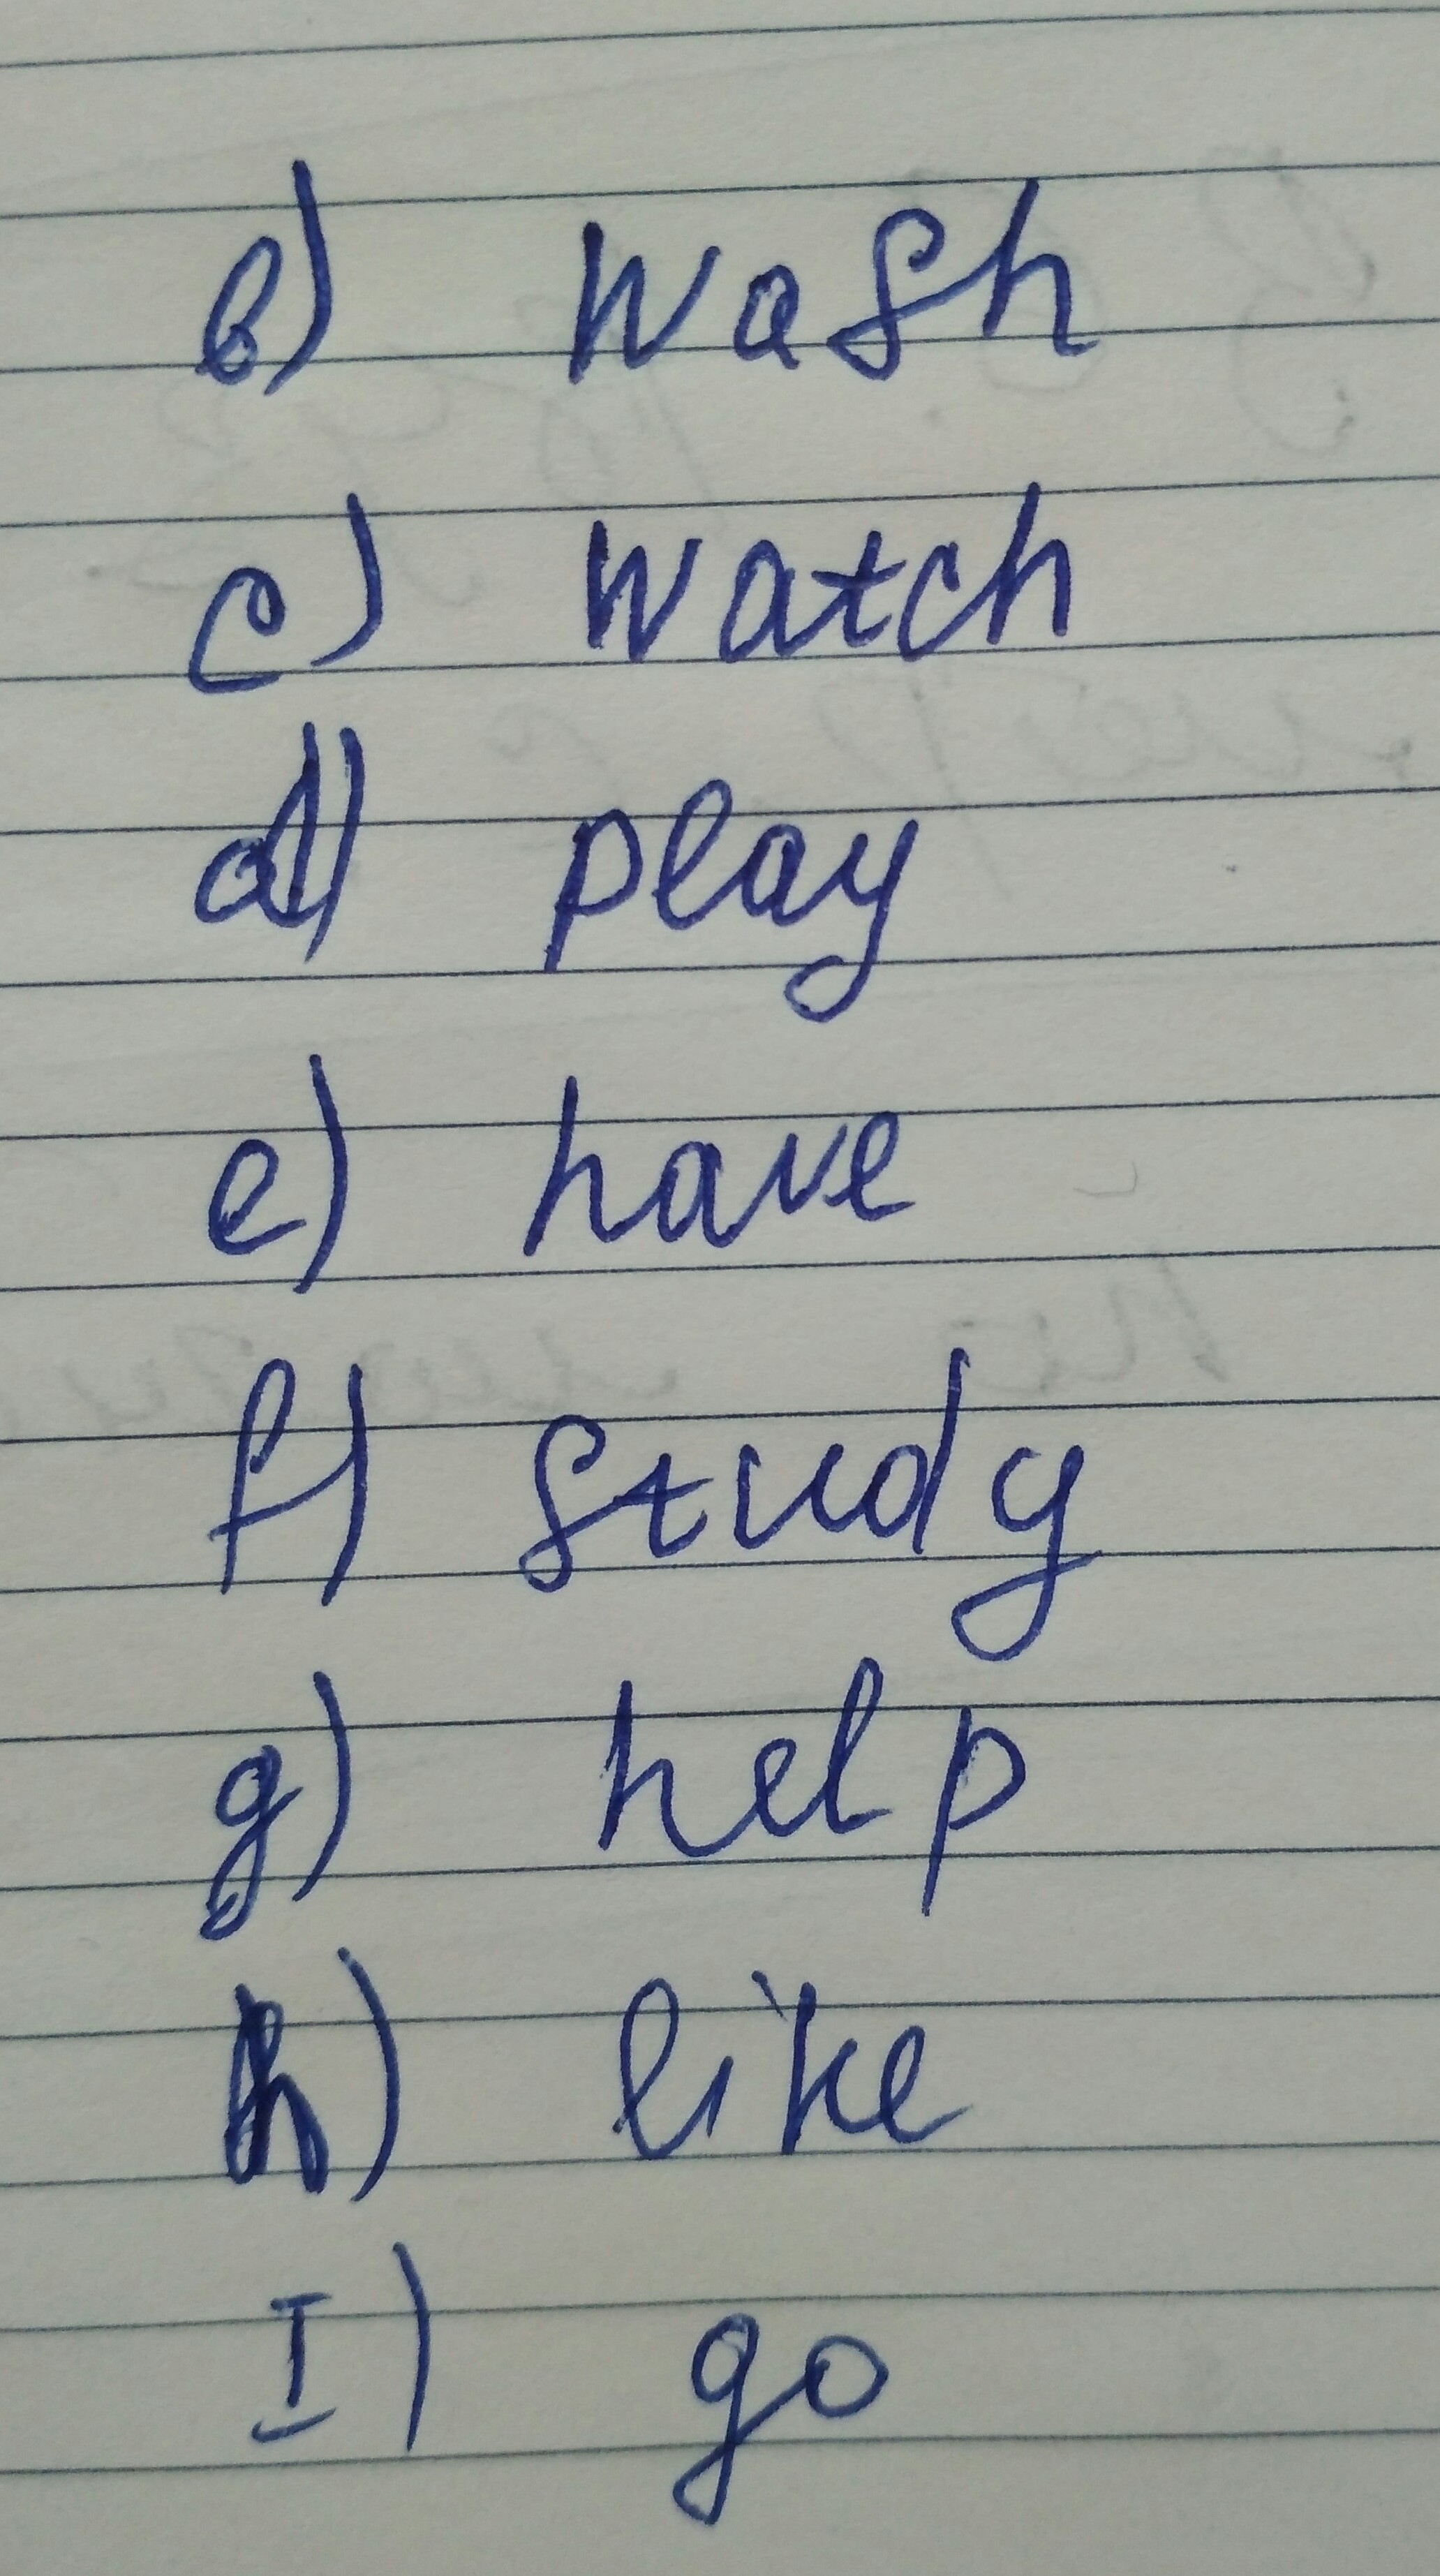 b) wash
c) watch
d) play
e) have
f) study
g) help
h) like
I) go